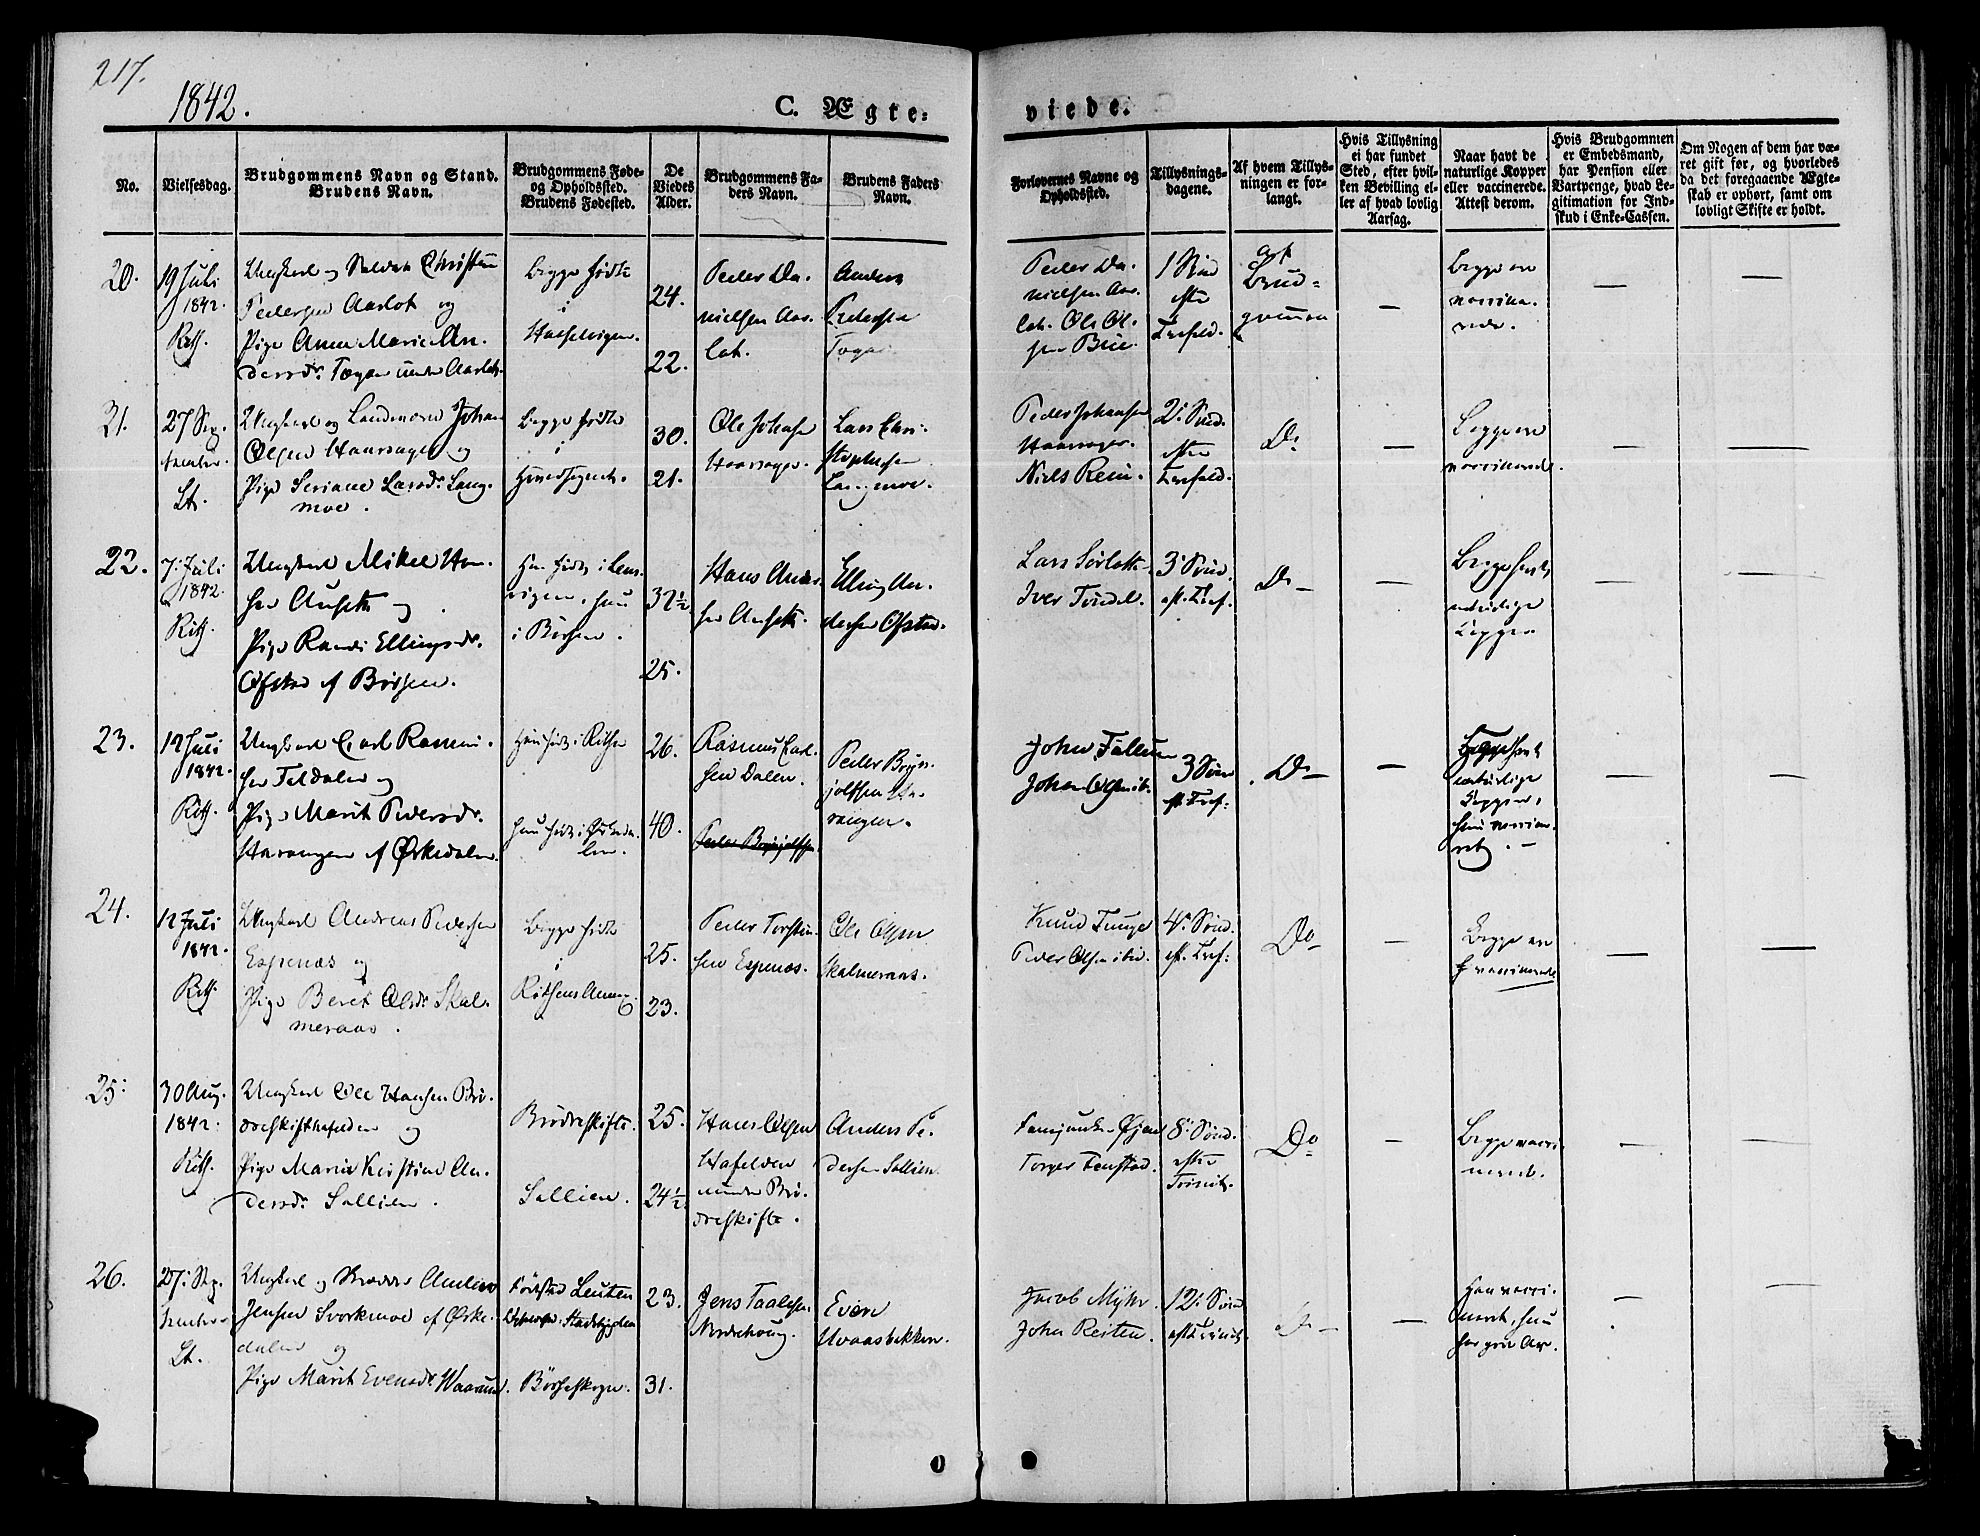 217.
1842.
C. Ægte-
viede.
No.
Vielsesdag.
Brudgommens Navn og Stand.
Brudens Navn.
Brudgommens Føde-
og Opholdssted.
Brudens Fødested.
De
Viedes
Alder.
Brudgommens Fa-
ders Navn.
Brudens Faders
Navn.
Forlovernes Navne og
Opholdssted.
Tillysnings-
dagene.
Af hvem Tillys-
ningen er for-
langt.
Hvis Tillysning
ei har fundet
Sted, efter hvil-
ken Bevilling el-
ler af hvad lovlig
Aarsag.
Naar havt de
naturlige Kopper
eller vaccinerede.
Attest derom.
Hvis Brudgommen
er Embedsmand,
har Pension eller
Vartpenge, hvad Le-
gitimation for Ind-
skud i Enke-Cassen.
Om Nogen af dem har væ-
ret gift før, og hvorledes
da det foregaaende Ægte-
skab er ophørt, samt om
lovligt Skifte er holdt.
20.
19 Juli
1842.
Rith.
Ungkarl og Soldat Christen
Pedersen Aarlot og
Pige Anne Marie An-
dersdr. under Aarlot
Begge fødte
i
24.
22.
Peder Da-
nielsen Aar-
lot.
Anders
Pedersen
Peder Da-
nielsen Aar-
lot. Ole Ol-
sen
1 Sønd
efter
Trefold.
af
Brud-
gommen
Begge ere
vaccine-
rede.
21.
27 Sep-
tember.
Lt.
Ungkarl og Landmand Johan
Olsen Haarsager og
Pige Seriane Larsdr. Lang-
moe.
Begge fødte
i
30.
21.
Ole Johnsen
Haarsager.
Lars Chri-
stophersen
Langmoe.
Peder Johansen
Haarsager.
Niels Rein.
2. Sønd.
efter
Trefold.
Do
Begge ere
vaccinerede.
22.
7. Juli
1842.
Rith.
Ungkarl Mikel Han-
sen og
Pige Randi Ellingsdr.
Ofstad af Børsen.
Han født i Lens-
vigen, hun
i Børsen.
32½
25.
Hans Anders-
sen
Elling An-
dersen Ofstad.
Lars Sørlotte
Iver Tøndel.
3. Sønd.
eft. Tref.
Do
Begge havt
naturlige
Kopper.
23.
12 Juli
1842.
Rith.
Ungkarl Carl Rasmu-
sen Feldalen og
Pige Marit Pedersdr.
Harangen af Ørkedalen.
Han født i Rithsen
hun født i Ørkeda-
len.
26.
40.
Rasmus Carl-
sen Dalen.
Peder Brynjolfsen
Peder Bryn-
jolfsen Ha-
rangen.
John Fallun
Johan Olsen ib.
3 Sønd
eft. Tref.
Do
Begge havt
naturlige
Kopper,
hun vaccine-
ret.
24.
12 Juli
1842.
Rith.
Ungkarl Andreas Pedersen
Espenæs og
Pige Beret Olsdr. Skal-
meraas.
Begge fødte
i
Rithsens Annex
25.
23.
Peder Torstin-
sen Espenæs.
Ole Olsen
Skalmeraas.
Knud Tunge
Peder Olsen ibid.
4. Sønd.
eft. Tref:
Do
Begge ere
vaccinerede
25.
30 Aug.
1842.
Rith.
Ungkarl Ole Hansen Brø-
dreskifthafelden og
Pige Maria Kirstine An-
dersdr. Sallien.
Brødreskifte.
Sallien.
25.
24½
Hans Olsen
Hafelden
under Brø-
dreskifte.
Anders Pe-
dersen Sallien.
Øjen
Torger Fenstad.
8. Sønd.
efter
Trinit.
Do
Begge vacci-
nerede.
26.
27. Sep-
tember
Lt.
Ungkarl og
Jensen Svorkmoe af Ørke-
dalen og
Pige Marit Evensdr. Waarum.
Børseskogn.
23.
31.
Jens Taalesen
Nordehoug.
Even
Uvaasbakken.
Jacob Myhr.
John Reiten.
12. Sønd
eft. Trinit.
Do
Han vacci-
neret, hun